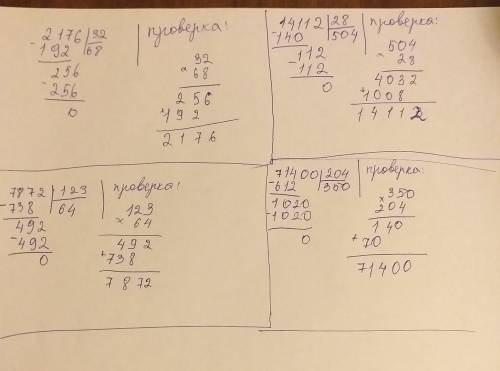 2176 | 32
- 192 | 68
256
- 256
0
проверка:
32
× 68
256
+ 192
2176
14112 | 28
- 140 | 504
- 112
112
0
проверка:
504
× 28
4032
+ 1008
14112
7872 | 123
- 738 | 64
492
- 492
0
проверка:
123
× 64
492
+ 738
7872
71400 | 204
- 612 | 350
1020
- 1020
0
проверка:
× 350
204
140
+ 70
71400